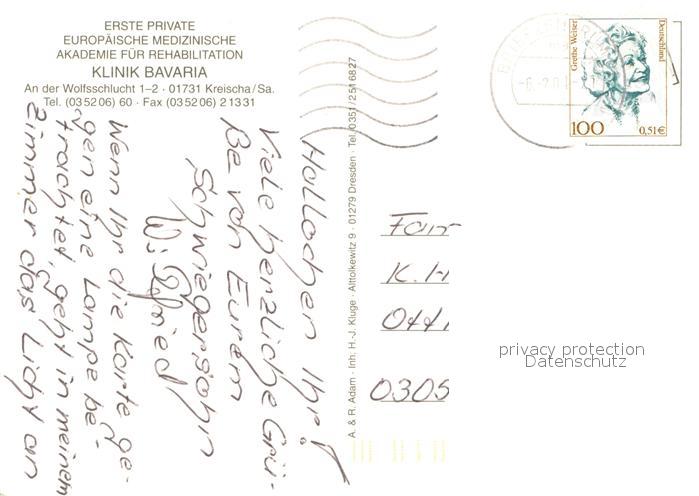 ERSTE PRIVATE
EUROPÄISCHE MEDIZINISCHE
AKADEMIE FÜR REHABILITATION
KLINIK BAVARIA
An der Wolfsschlucht 1–2 · 01731 Kreischa/Sa.
Tel. (035206) 60 · Fax (035206) 21331
Hallochen Ihr!
Viele herzliche Grü-
ße von Eurem
Schwiegersohn
Wenn Ihr die Karte ge-
gen eine Lampe be-
trachtet, geht in meinem
Zimmer das Licht an
A. & R. Adam · Inh. H.-J. Kluge · Alttolkewitz 9 · 01279 Dresden · Tel. 0351/2516827
Grethe Weiser
Deutschland
100
0,51€
Fam
K. H
0305
privacy protection
Datenschutz